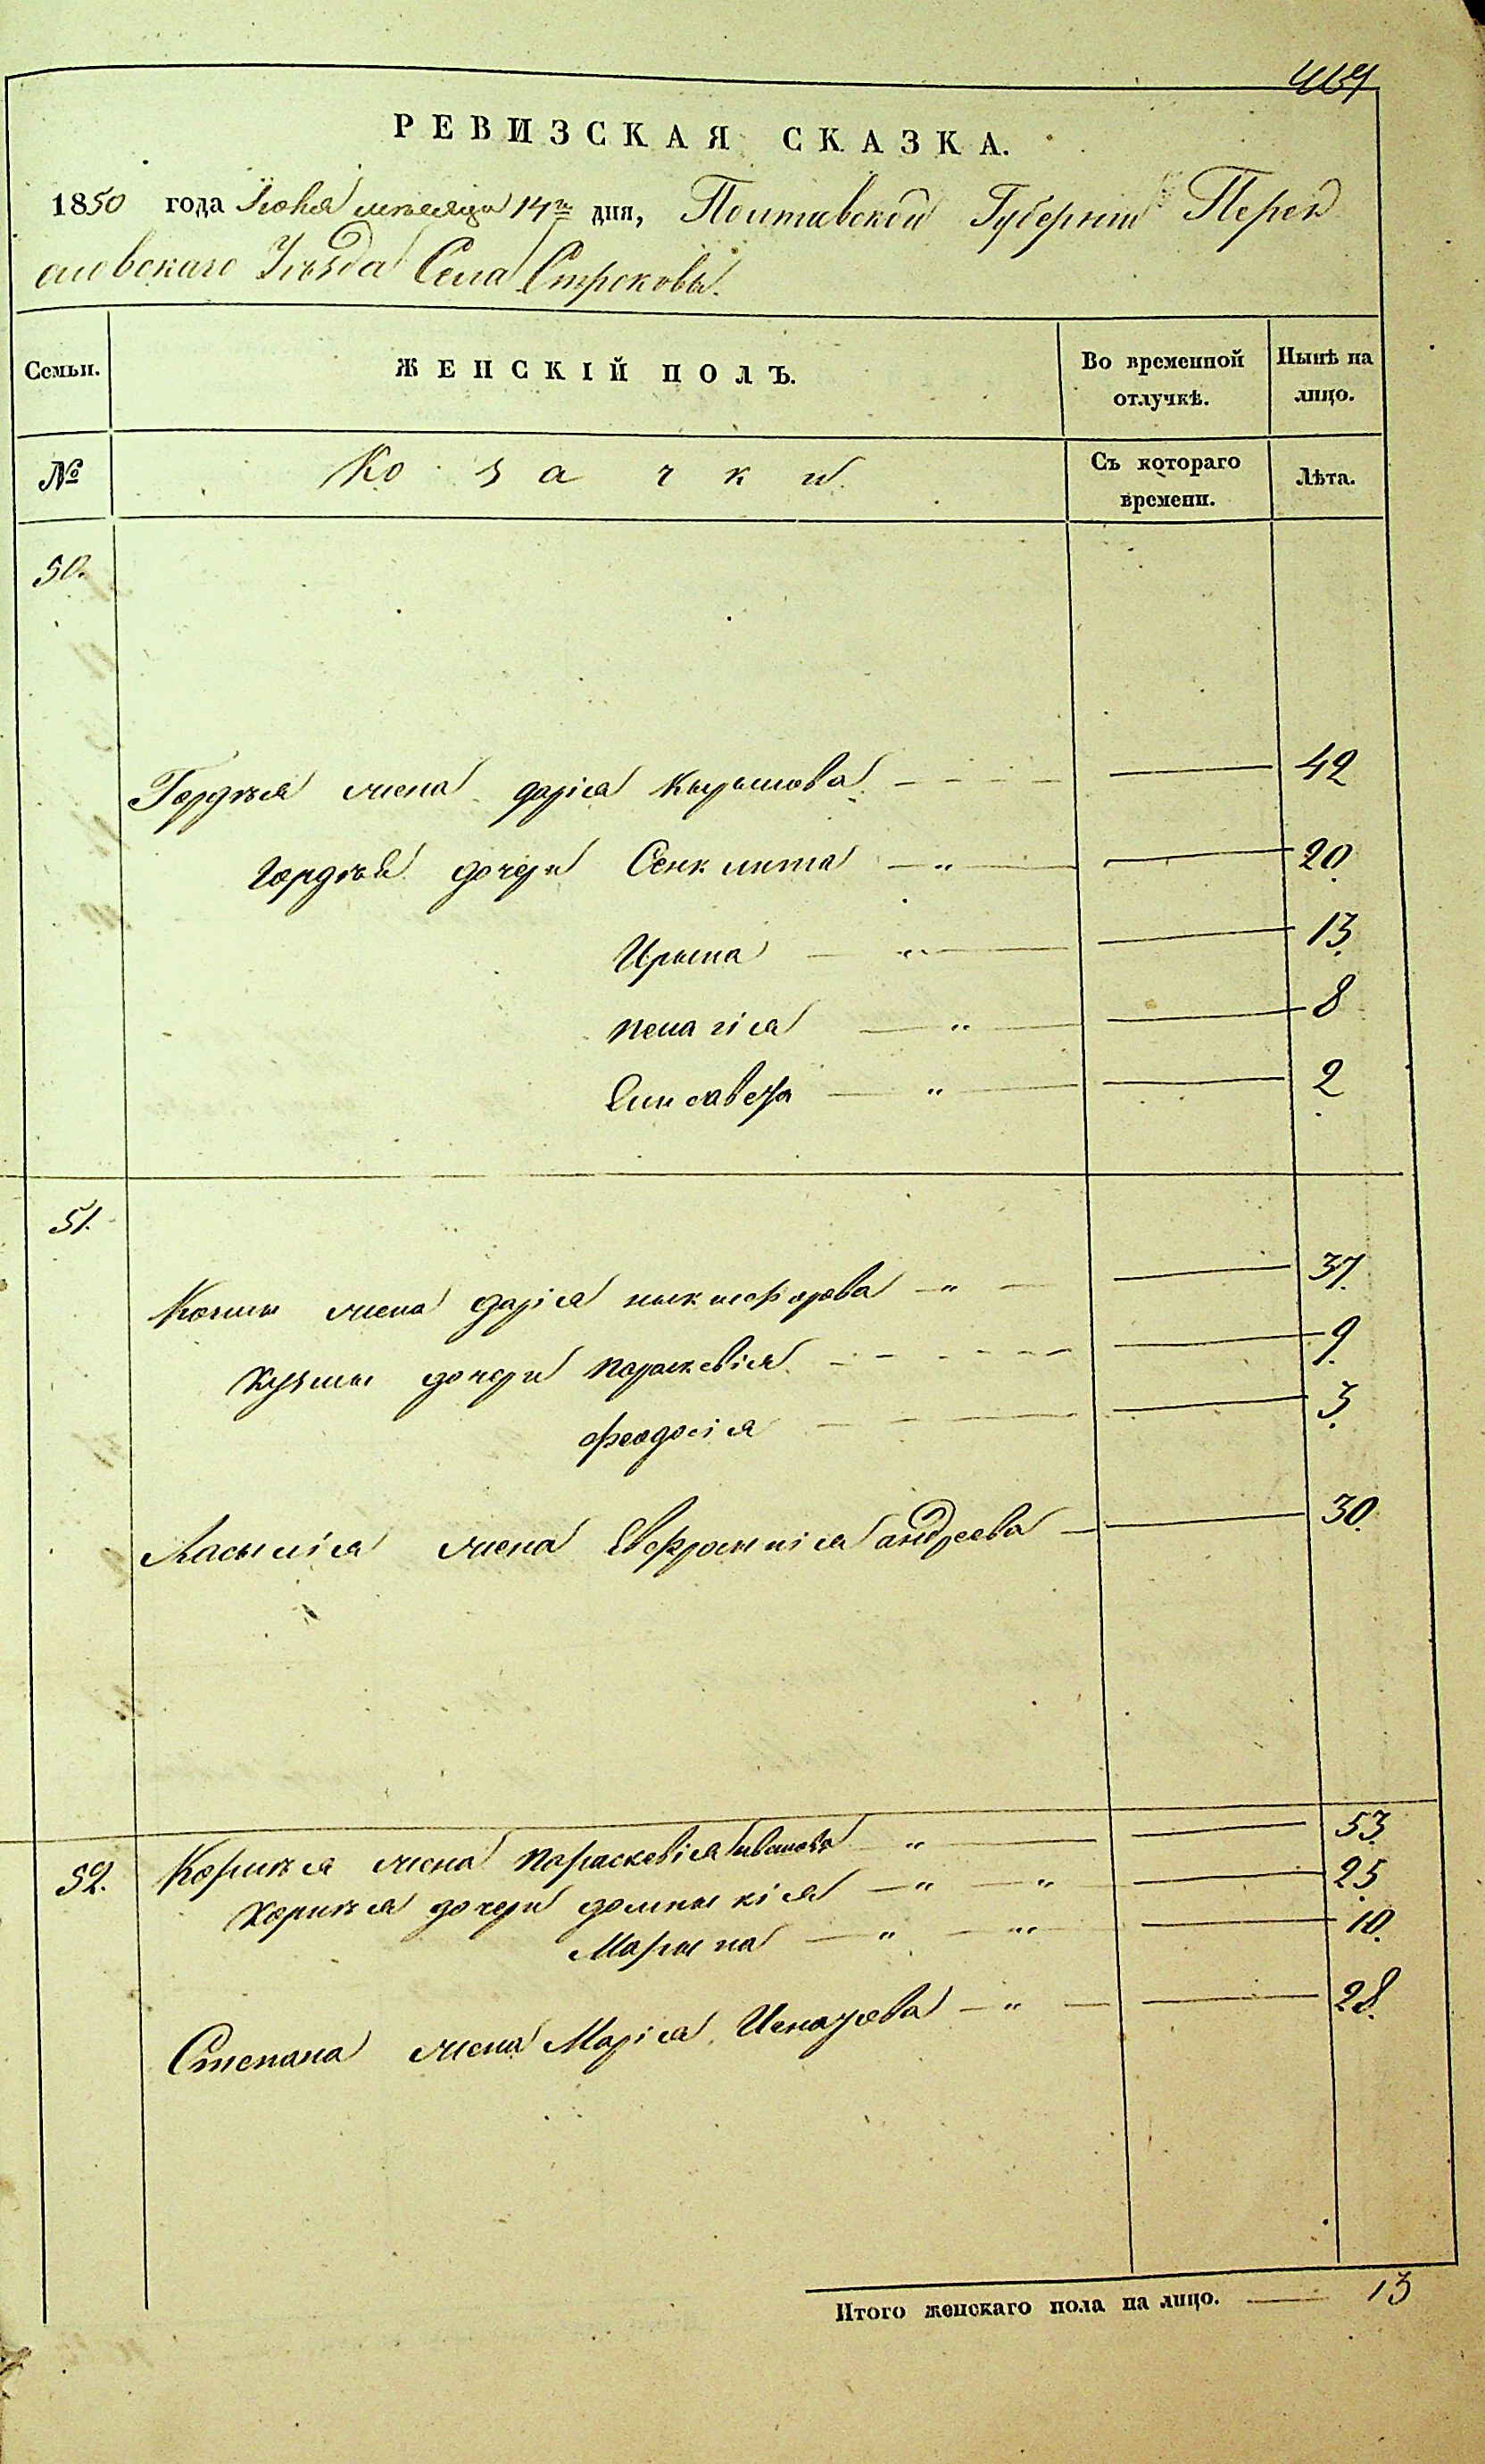 469
РЕВИЗСКАЯ СКАЗКА.
1850 года Іюня мѣсяца 14го дня, Полтавской Губерніи Перея
славскаго Уѣзда Села Строковы.
Семьи. ЖЕНСКІЙ ПОЛЪ. Во временной отлучкѣ. Нынѣ на лицо.
№ Козачки Съ котораго времени. Лѣта.
50.
Гордѣя жена дарія 42
Гордѣя дочери Сенклита — „ — 20.
Ирына — „ — 13.
пелагіея — „ — 8
Елисавета — „ — 2
51.
жена дарія никифорова — „ — 37.
Кузмы дочери параскевія 9.
феодосія 3.
жена Евфросинія андреева — 30.
52. Корнѣя жена параскевія иванова „ — 53.
Корнѣя дочери домникія — „ — „ 25
Марына — „ — „ 10.
Степана жена Марія — „ — 28.
Итого женскаго пола на лицо. — 13